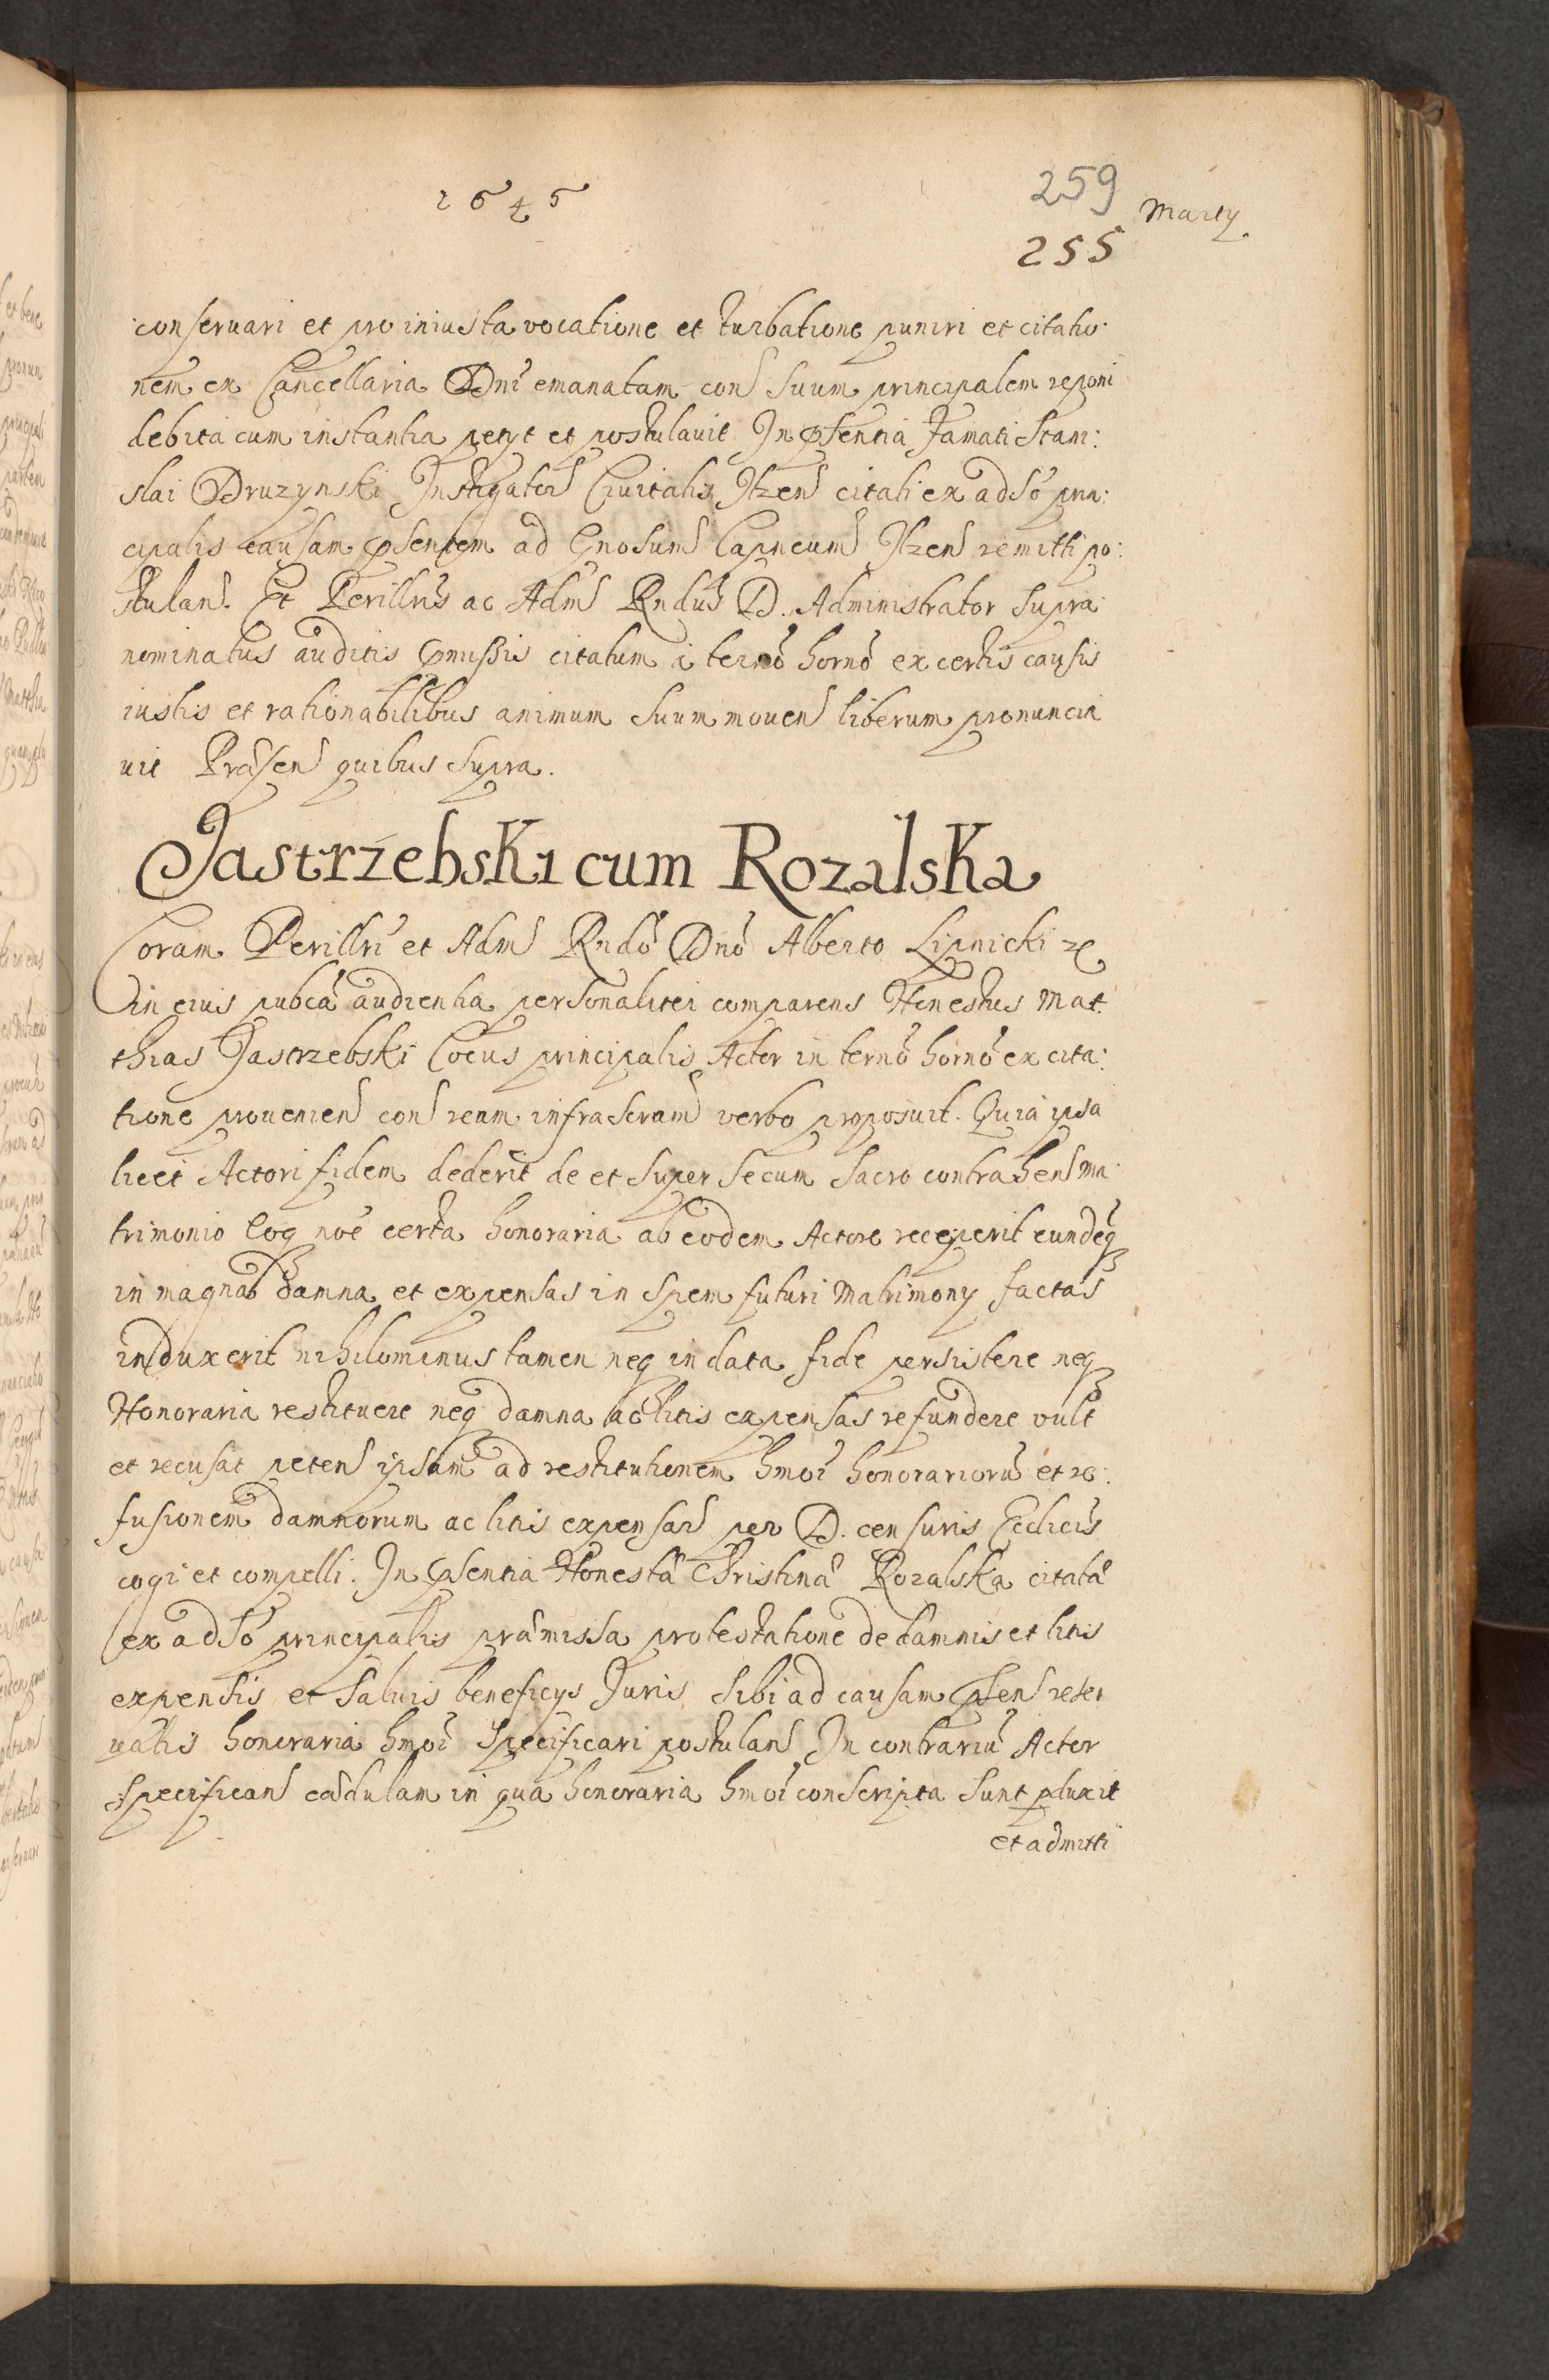 1645
259
Martij
255
conseruari et pro iniusta vocatione et turbatione puniri et citatio:
nem ex Cancellaria Dni emanatam cons suum principalem reponi
debita cum instantia petyt et postulauit In pñsentia Famati Stani:
slai Druzynski Instigatoris Ciuitatis Ilzen citati ex adso prin:
cipalis causam pñsentem ad Gnosum Capneum Ilzen remitti po:
stulans. Et Perillris ac Adm Rndus D. Administrator supra
nominatus auditis pmissis citatum a termo horno ex certis causis
iustis et rationabilibus animum suum mouen liberum pronuncia
uit Præsen quibus supra.
Jastrzebski cum Rozalska
Coram Perillri et Adm Rndo Dno Alberto Lipnicki etc
in eius pubca audientia personaliter comparens Honestus Mat:
thias Jastrzebski Cocus principalis Actor in termo horno ex cita:
tione prouenien con ream infrascram verbo proposuit. Quia ipsa
licet Actori fidem dederit de et super secum sacro contrahen ma:
trimonio eoq noe certa honoraria ab eodem Actore receperit eundeq
in magna damna et expensas in spem futuri Matrimony factas
induxerit nihilominus tamen neq in data fide persistere neq
Honoraria restituere neq damna ac litis expensas refundere vult
et recusat peten ipsam ad restitutionem hmoi honorariorum et re:
fusionem damnorum ac litis expensar per D. censuris Ecclicis
cogi et compelli. In pñsentia Honestæ Christinæ Rozalska citatæ
ex adso principalis præmissa protestatione de damnis et litis
expensis et saluis beneficys Juris sibi ad causam pñsen reser
uatis honoraria hmoi specificari postulan In contrariu Actor
specifican cædulam in qua honoraria hmoi conscripta sunt pduxit
et admitti